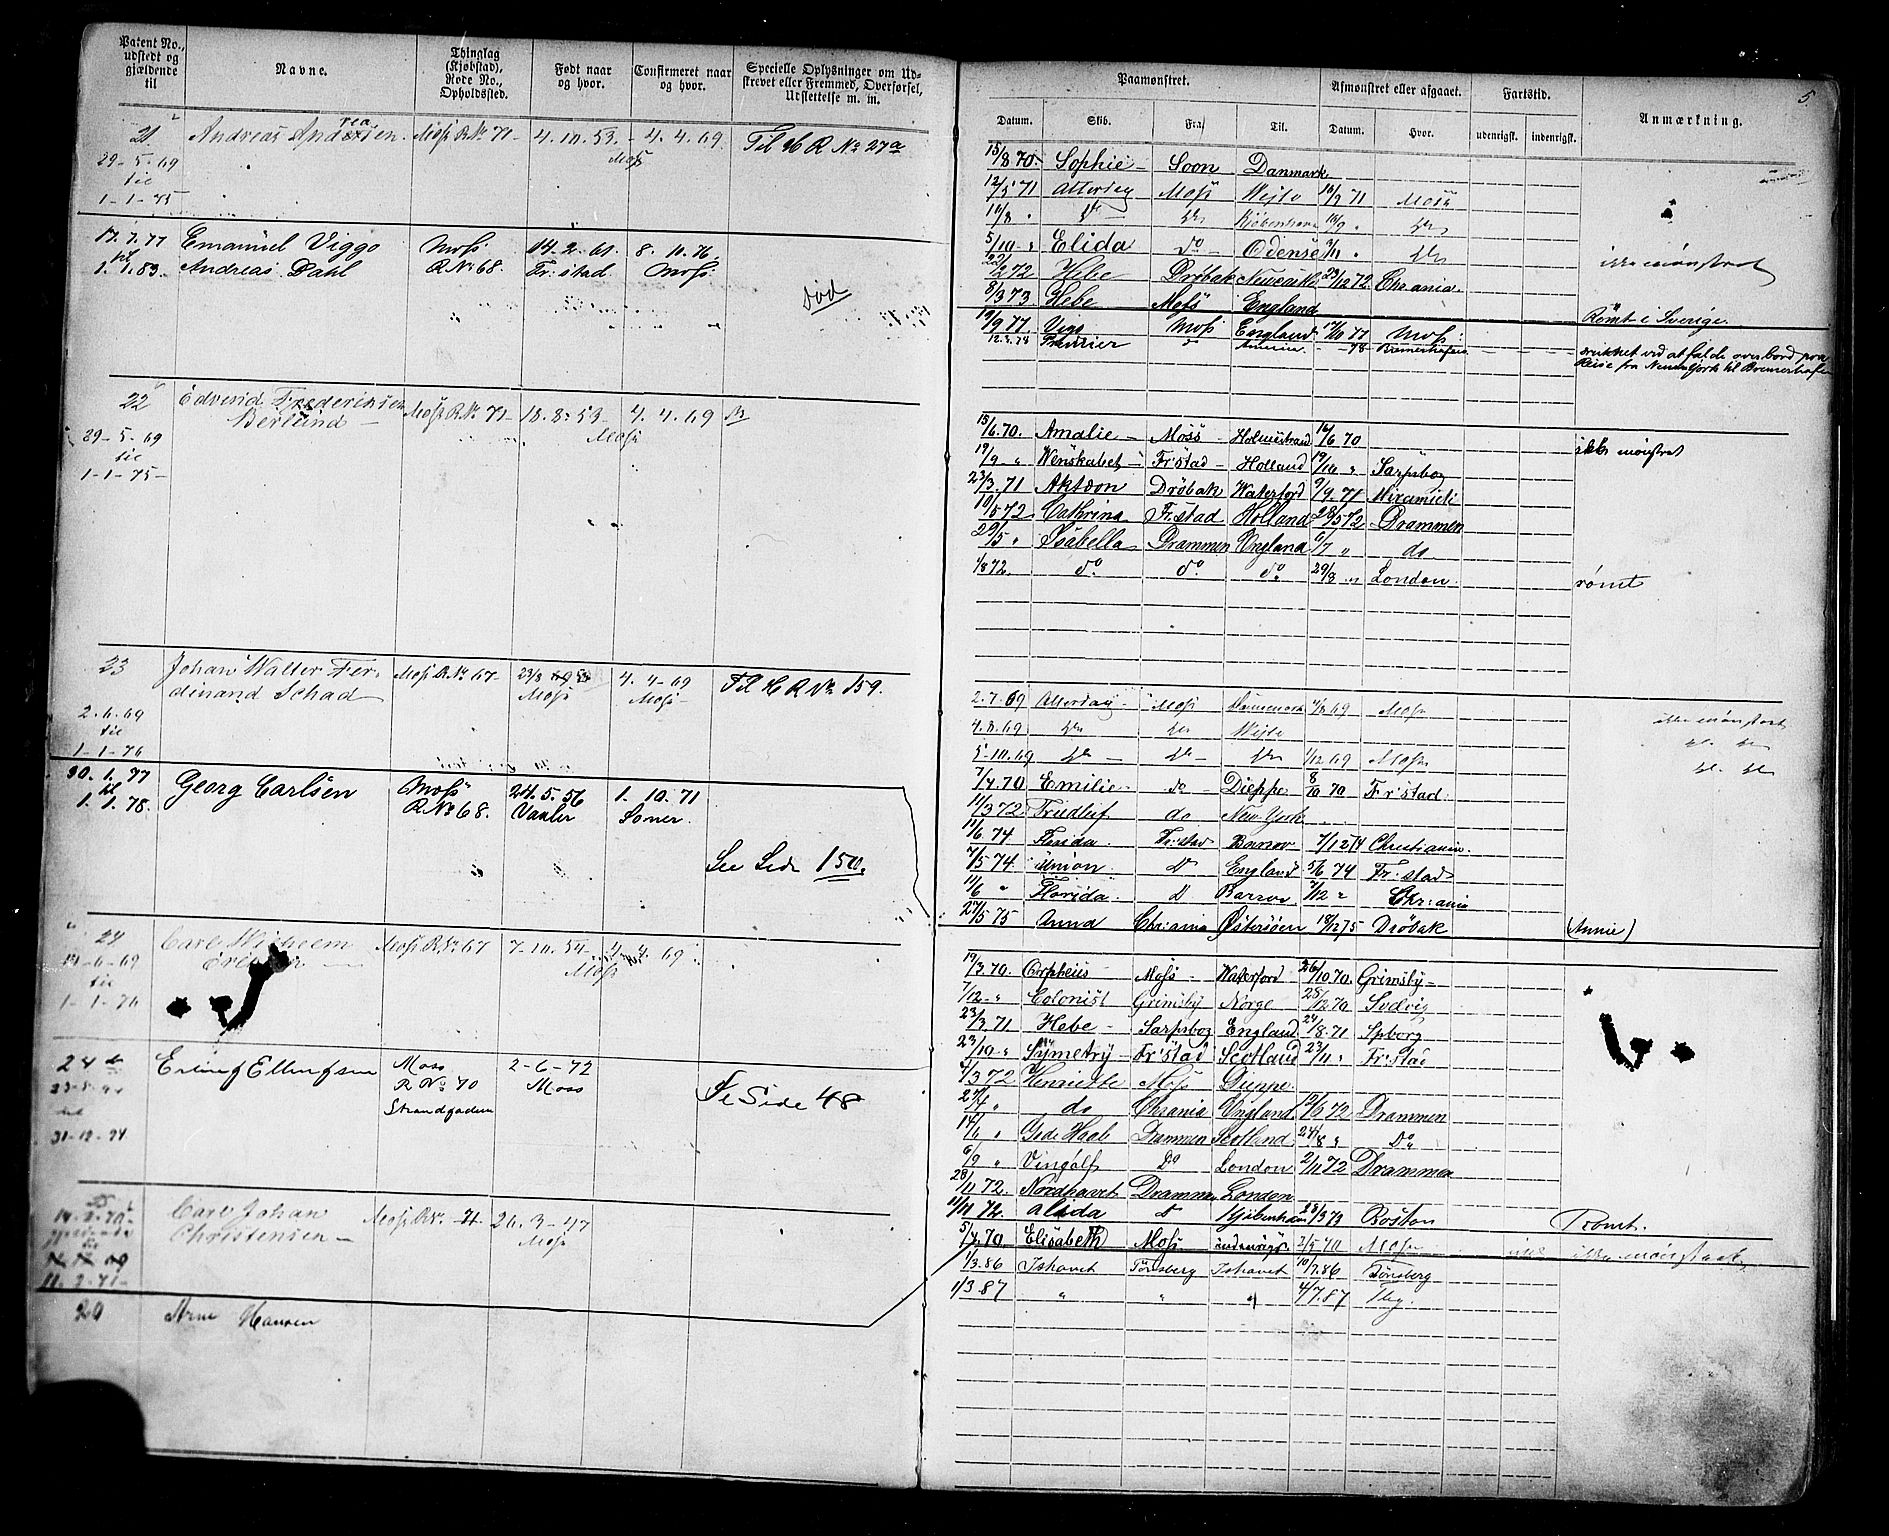 Patent No., udstedt og gjældende til
Navne.
Thinglag (Kjøbstad), Rode No., Opholdssted.
Født naar og hvor.
Confirmeret naar og hvor.
Specielle Oplysninger om Udskrevet eller Fremmed, Overførsel, Udslettelse m. m.
21 Andreas Andersen Moss R No 71 4.10.53. 4.4.69 Til H R No 27a
29-5-69 Moss
til
1-1-75
17.7.77 Emanuel Viggo Moss 14.2.61. 8.10.76
til Andreas Dahl R No 68. Fr.stad Moss
1.1.83. død
22 Edvend Frederiksen Moss R No 71 18.8.53 4.4.69
Berlund Moss
29-5-69
til
1-1-75
23 Johan Walter Fer- Moss R No 67 23/8 4.4-69 Til H R No 159.
dinand Schad Moss Moss
2.6.69
til
1-1-76
30.1.77 Georg Carlsen Moss 24.5.56 1.10.71
til R No 68. Vanler Soner.
1.1.78. See Side 150.
24 Carl Wilhelm Moss R No 67 7-10.54 4.4.69
14-6-69 Moss
til
1-1-76
24 b Erling Ellingsen Moss 2-6-72
R No 70 Moss
Strandgaden Se Side 48
til
31-12-94
Carl Johan Moss R No 71 26.3-47
14.2.70 Christensen Moss
til
11.2.71
20 Arne Hansen
5
Paamønstret. Afmønstret eller afgaaet. Fartstid. Anmærkning.
Datum. Skib. Fra Til. Datum. Hvor. udenrigsk. indenrigsk.
15/8.70. Sophie Soon Danmark
12/5 71 Atterdag Moss Wejle 16/7 71 Moss
16/8 " do do Kjøbenhavn 18/9 " do
5/10 " Elida do Odense " do ikke mønstret
72 Hebe Drøbak 23/12 72 Chrania
8/3 73 Hebe Moss England Rømt i Sverige.
19/9 77. Vigo Moss England 17/10 77 Moss
12.3.78 78 Bremerhafen druknet ved at falde overbord paa
Reise fra New York til Bremerhafen
15/6.70. Amalie Moss Holmestrand 16/6 70 ikke mønstret
19/9 " Wenskabet Fr.stad Holland 19/10 " Sarpsborg
23/3.71 Aktæon Drøbak Waterford 9/9.71 Miramichi
10/5 72 Cathrina Fr.stad Holland 28/5 72 Drammen
29/5 " Isabella Drammen England 6/7 " do
1/8 72. do do do 29/8 " London rømt
2.7.69 Atterdag Moss Danmark 69 Moss ikke mønstret
4.8.69 do do Wejle do do
5-10.69 do do do 1/12 69 Moss do do
7/4.70 Emilie do Dieppe 8/10 70 Fr.stad
11/3 72 Fridleif do New York
11/6.74 Florida Fr.stad Barrow 7/12 74 Christiania
7/5 74. Union do England 5/6 74 Fr.stad
11/6 " Florida. do Barrow 7/12 " Chr:ania
27/5 75 Anna Chr:ania Østersøen 18/12 75 Drøbak (Annie)
19/3.70. Orpheus Moss Waterford 26/10 70. Grimsby
7/12 " Colonist Grimsby Norge 28/12 70 Sndvig
23/3.71 Hebe Sarpsborg England 24/8.71 Spborg
23/10 " Symetry Fr.stad Scotland 23/11 " Fr.stad
/3 72 Henriette Moss Dieppe
27/4 " do Chrania England 12/ 72 Drammen
14/6 " Gode Haab Drammen Scotland 24/8 " Do
6/9 " Vingolf Do London 2/11 72 Drammen
28/11 72. Nordhavet Drammen London
11/11 72. Alida do Kjøbenhavn 28/3 73 Boston Rømt.
5/4.70 Elisabeth Moss indenrigs 2/5 70 Moss ikke mønstret
1/3.86 Ishavet Tønsberg Ishavet 10/7.86 Tønsberg
1/3 87 " " " 4/7.87 Tbg.